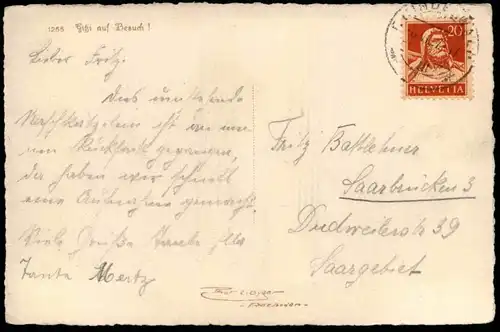 1255 Gitzi auf Besuch!
Lieber Fritz.
Das umstehende
ist an mei
nen Rucksack gegangen,
da haben wir schnell
eine Aufnahme gemacht.
Viele Grüße Tante Ella
Tante Mertz
20
HELVETIA
Fritz Battlehner
Saarbrücken 3
Dudweilerstr 39
Saargebiet